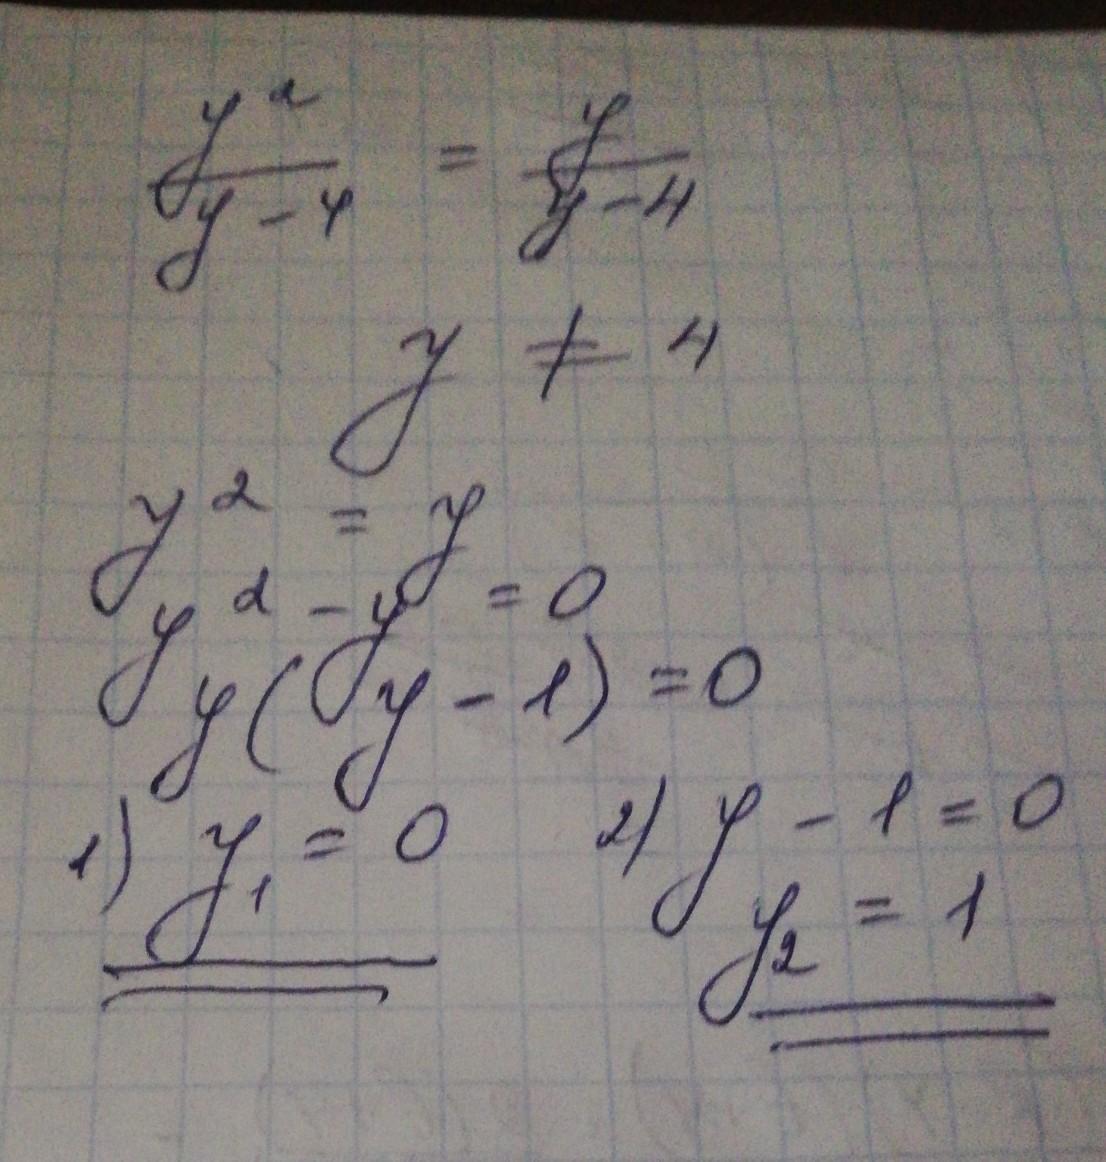 y²/(y-4) = y/(y-4)
y ≠ 4
y² = y
y² - y = 0
y(y - 1) = 0
1) y₁ = 0 2) y - 1 = 0
y₂ = 1